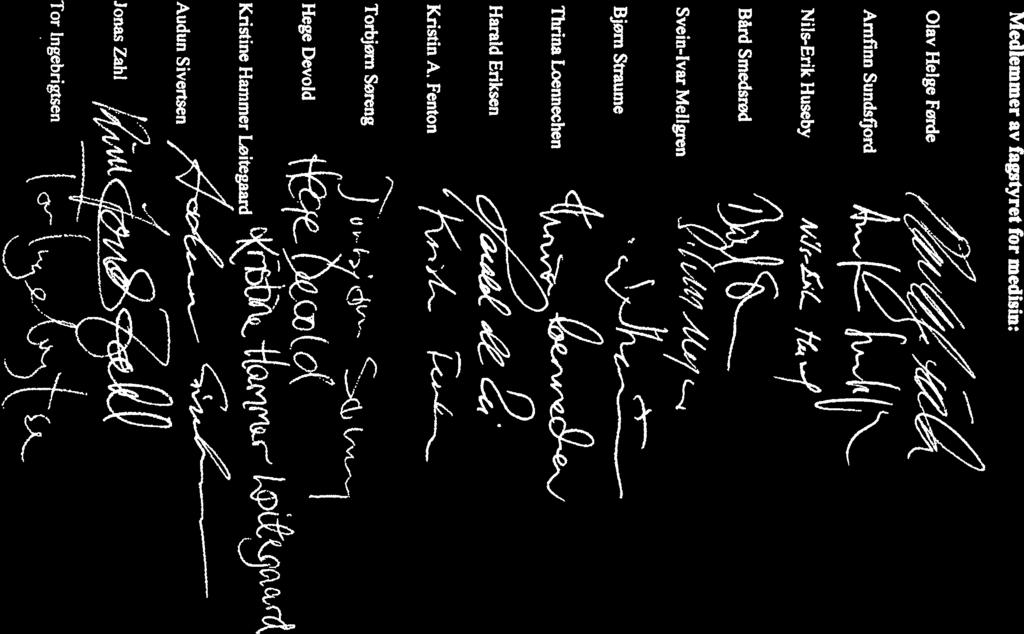 Medlemmer av fagstyret for medisin:
Olav Helge Førde
Arnfinn Sundsfjord
Nils-Erik Huseby Nils-Erik Huseby
Bård Smedsrød
Svein-Ivar Mellgren
Bjørn Straume
Thrina Loennechen Thrina Loennechen
Harald Eriksen
Kristin A. Fenton Kristin Fenton
Torbjørn Søreng Torbjørn Søreng
Hege Devold Hege Devold
Kristine Hammer Løitegaard Kristine Hammer Løitegaard
Audun Sivertsen
Jonas Zahl
Tor Ingebrigtsen Tor Ingebrigtsen